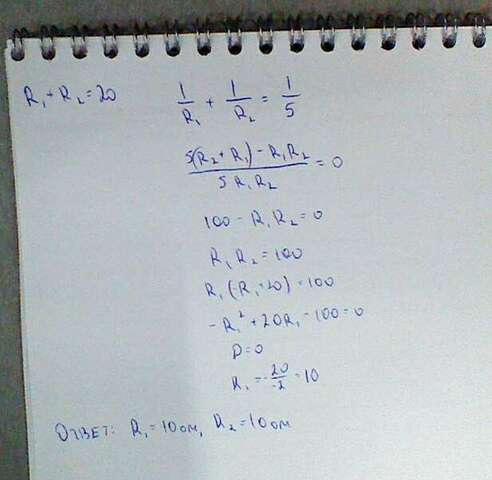 R₁ + R₂ = 20
1/R₁ + 1/R₂ = 1/5
5(R₂ + R₁) - R₁R₂ / 5R₁R₂ = 0
100 - R₁R₂ = 0
R₁R₂ = 100
R₁(-R₁+20) = 100
-R₁² + 20R₁ - 100 = 0
D = 0
R₁ = -20/-2 = 10
Ответ: R₁ = 10 ом, R₂ = 10 ом